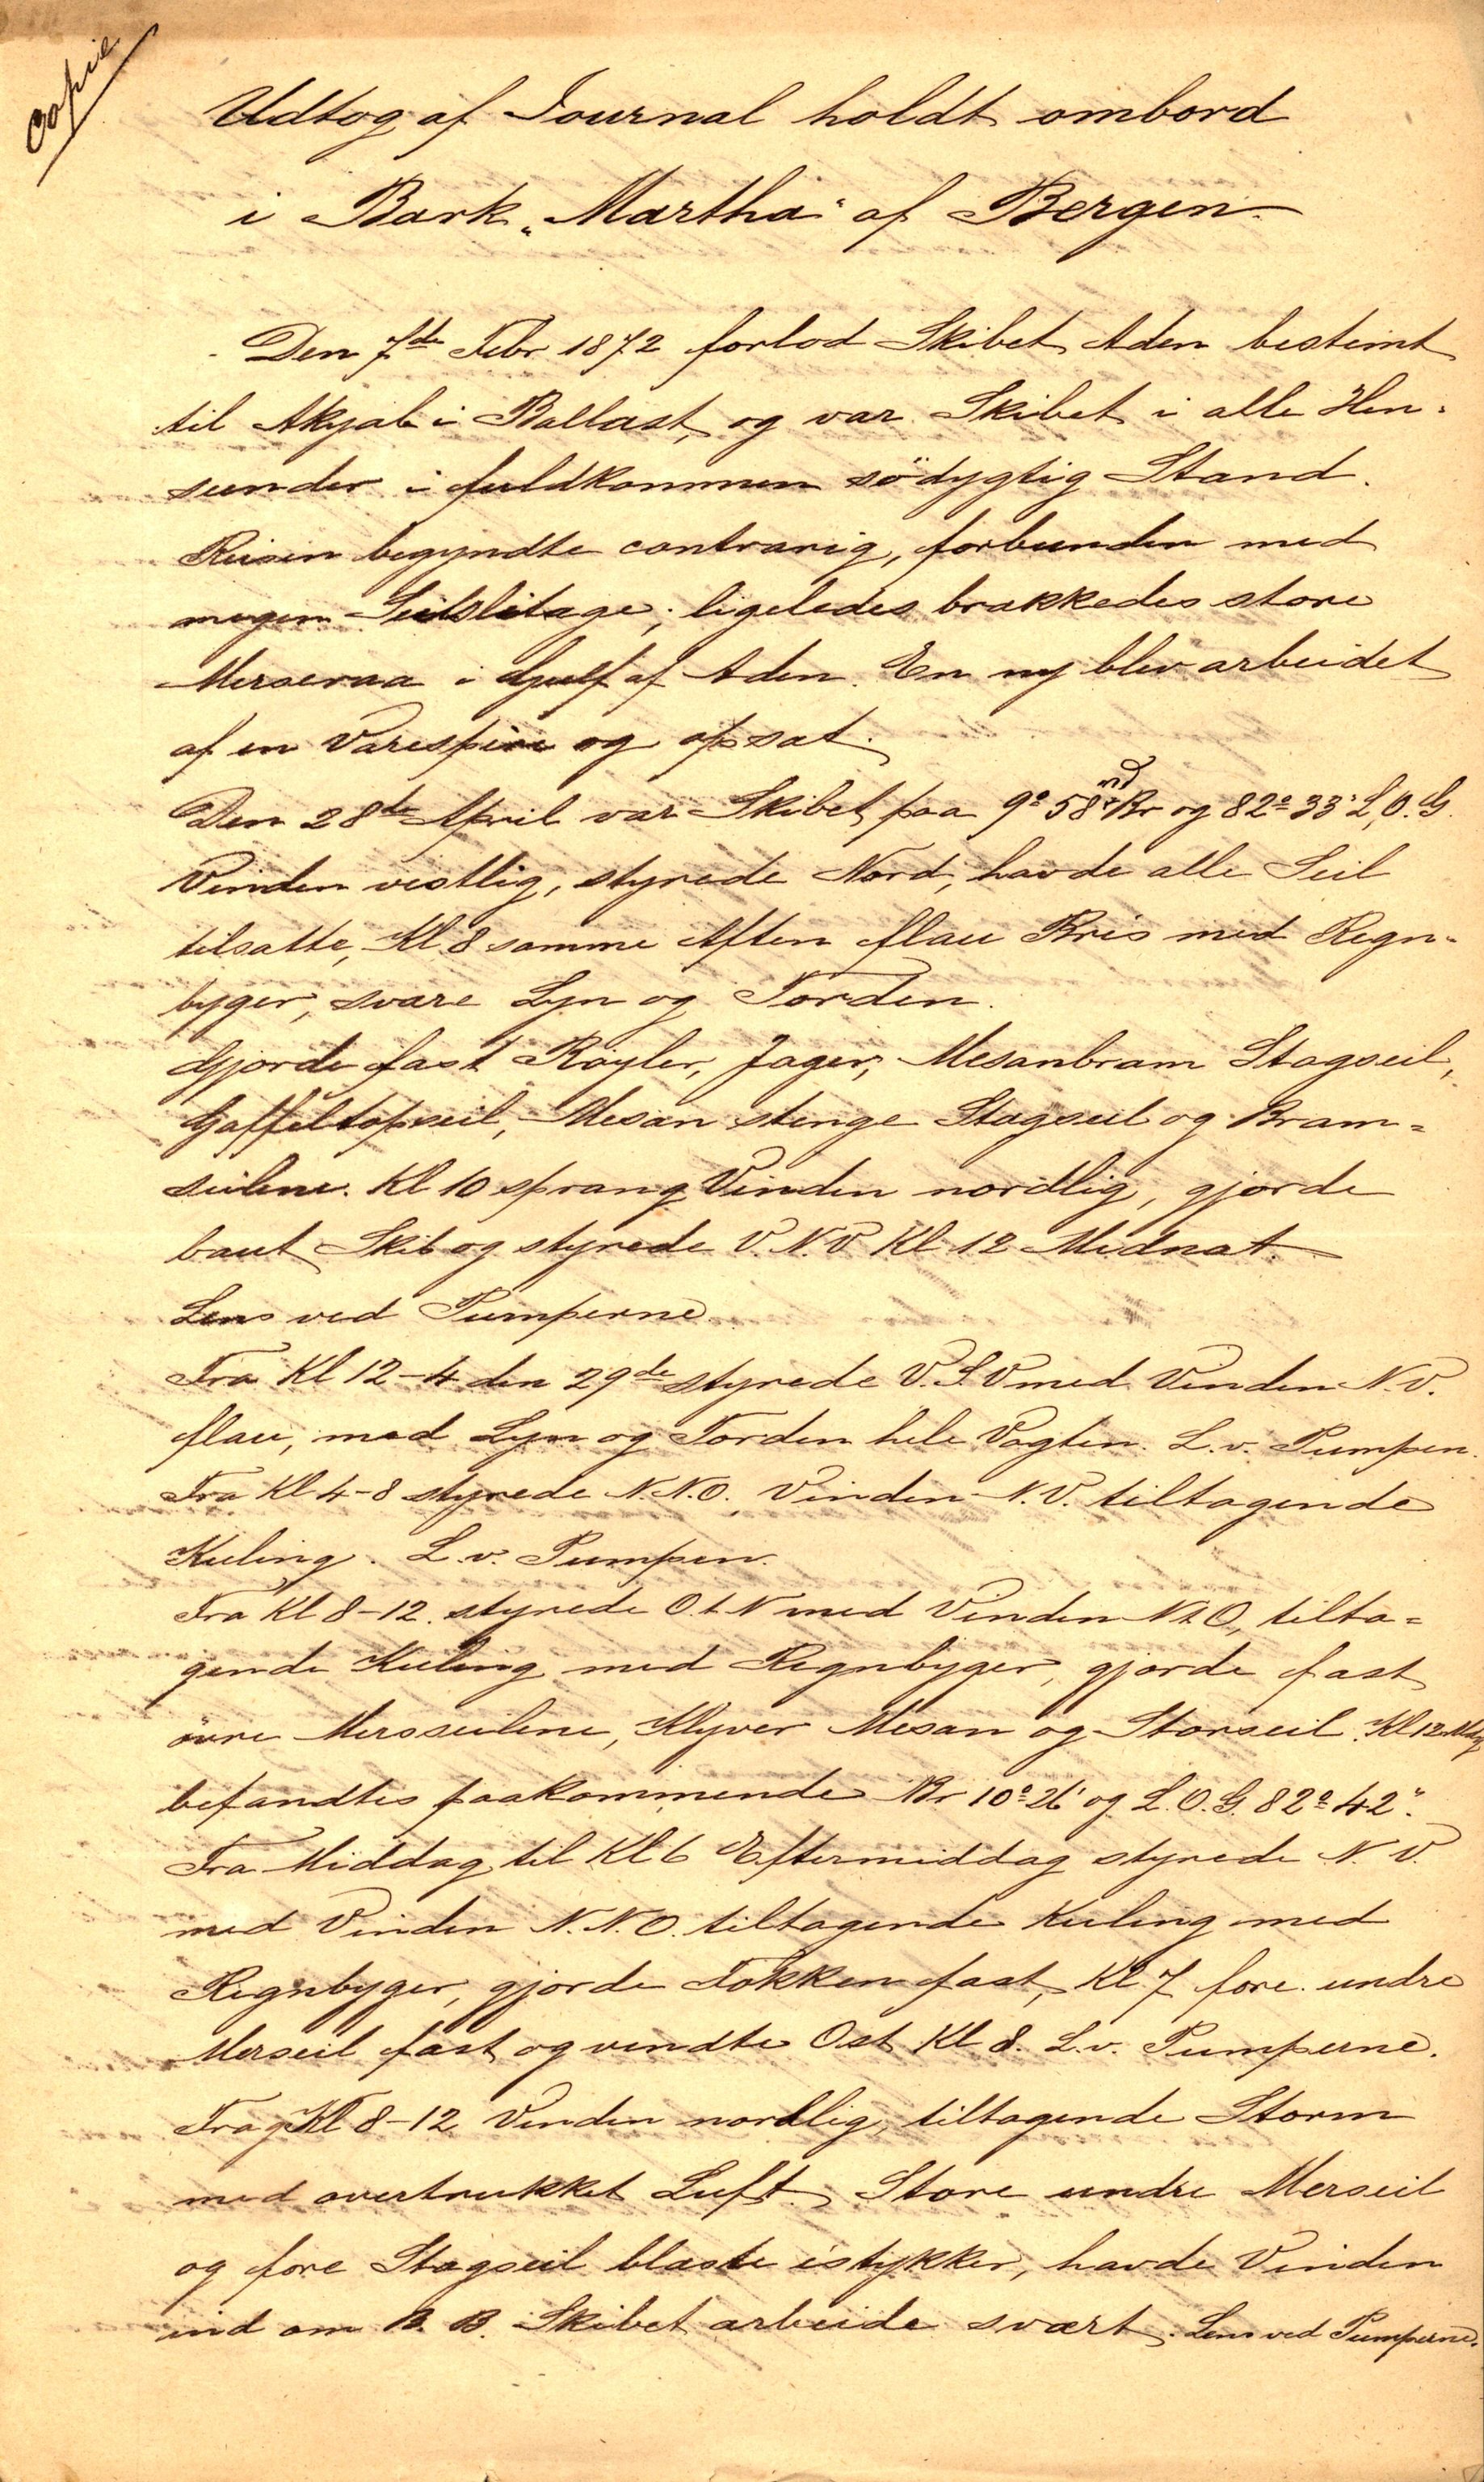 Copie
Udtog af Journal holdt ombord
i Bark „Martha“ af Bergen.
Den 7de Febr 1872 forlod Skibet Aden bestemt
til Akyab i Ballast, og var Skibet i alle Hen-
seender i fuldkommen södygtig Stand.
Reisen begyndte contrarig, forbunden med
megen Seilslitage; ligeledes brakkedes store
Merseraa i Gulf af Aden. En ny blev arbeidet
af en Varespire og opsat.
Den 28de April var Skibet paa 9° 58' Nd Br og 82° 33' L. O. G.
Vinden vestlig, styrede Nord, havde alle Seil
tilsatte, Kl 8 samme Aften flau Bris med Regn-
byger, svare Lyn og Torden.
Gjorde fast Röyler, Jager, Mesanbram Stagseil,
Gaffeltopseil, Mesan stenge Stagseil og Bram-
seilene. Kl 10 sprang Vinden nordlig, gjorde
baut Skib og styrede V. N. V Kl 12 Midnat.
Lens ved Pumperne
Fra Kl 12-4 den 29de styrede V. S. V med Vinden N. V.
flau, med Lyn og Torden hele Vagten. L. v. Pumpen.
Fra Kl 4-8 styrede N. N. O. Vinden N. V. tiltagende
Kuling. L. v. Pumpen.
Fra Kl 8-12. styrede O. t. N med Vinden N t. O., tilta-
gende Kuling med Regnbyger, gjorde fast
övre Merseeilene, Klyver Mesan og Storseil. Kl 12 Mdg
befandtes paakommende Br 10° 26' og L. O. G. 82° 42".
Fra Middag til Kl 6 Eftermiddag styrede N. V.
med Vinden N. N. O. tiltagende Kuling med
Regnbyger, gjorde Fokken fast, Kl 7 fore undre
Merseil fast og vendte Ost Kl 8. L. v. Pumperne.
Fra Kl 8-12 Vinden nordlig, tiltagende Storm
med overtrukket Luft. Store undre Merseil
og fore Stagseil blæste istykker, havde Vinden
ind om B. B. Skibet arbeide svært. Lens ved Pumperne.